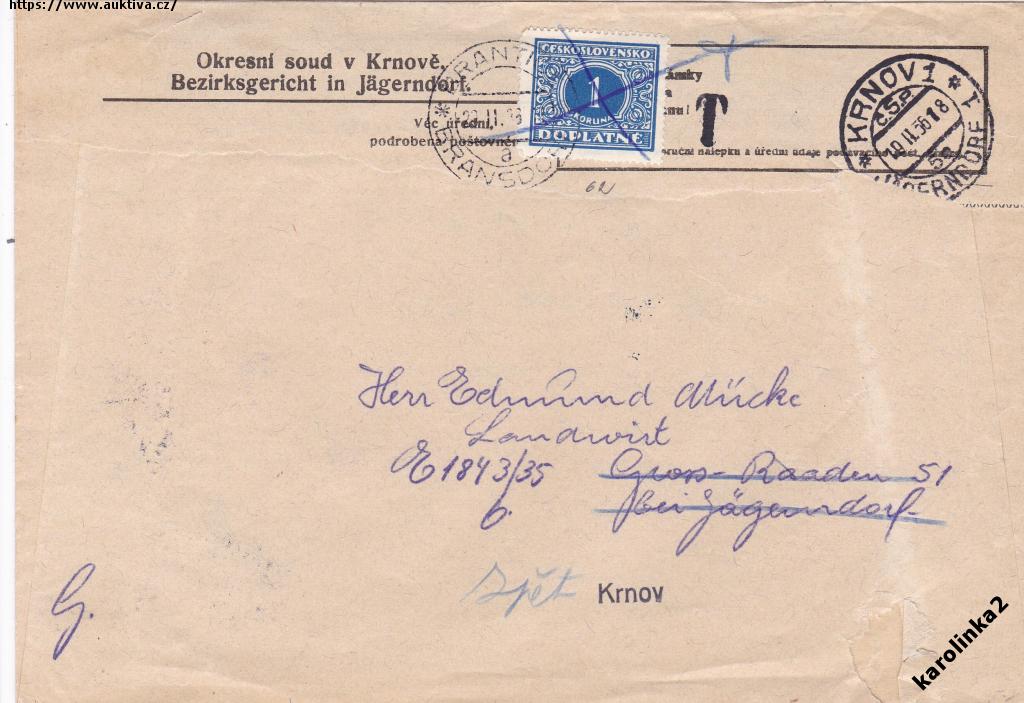 https://www.auktiva.cz/
Okresní soud v Krnově.
Bezirksgericht in Jägerndorf.
Věc úřední,
podrobena poštovném
FRANTI
BRANSDORF
a
ČESKOSLOVENSKO
1
KORUNA
DOPLATNÉ
T
nálepku a úřední údaje
KRNOV 1
ČSP
JÄGERNDORF 1
62
Herr Edmund Mücke
Landwirt
E 1843/35 Gross-Raaden 51
6. bei Jägerndorf
Zpět Krnov
G.
karolinka2